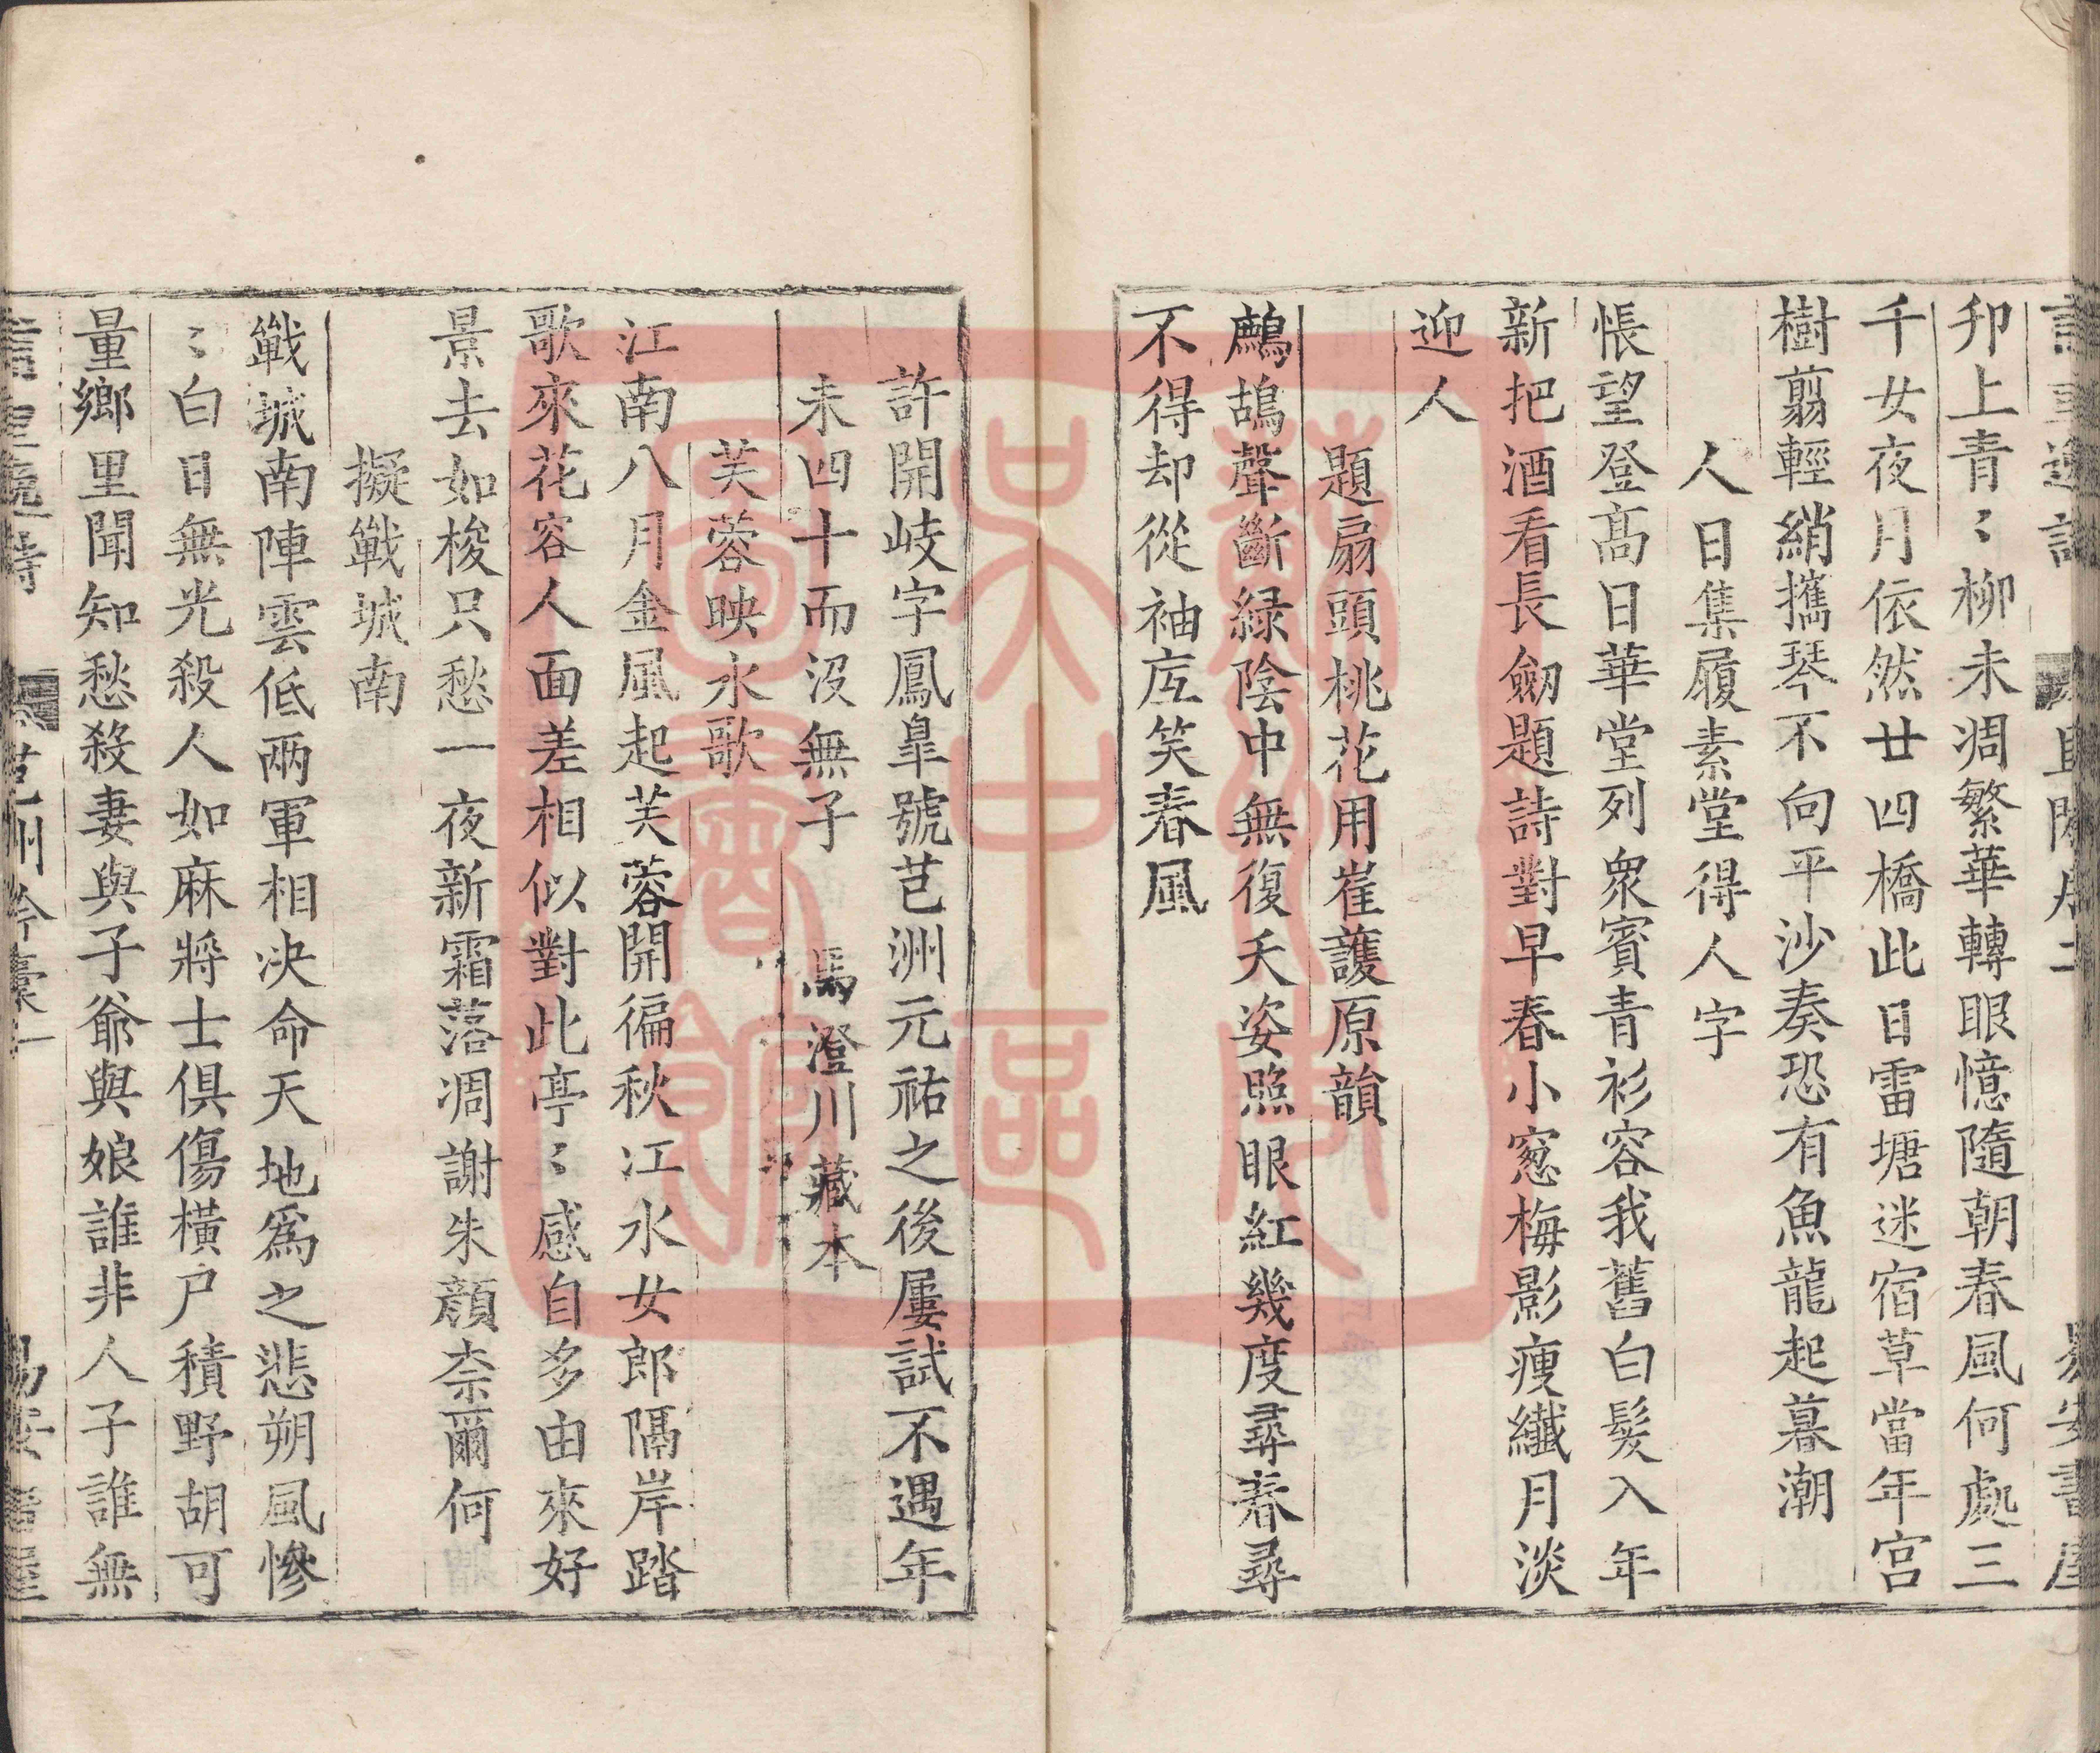 卯上青〻柳未凋繁華轉眼憶隨朝春風何處三
千女夜月依然廿四橋此日雷塘迷宿草當年宮
樹翦輕綃攜琴不向平沙奏恐有魚龍起暮潮
人日集履素堂得人字
悵望登高日華堂列衆賓青衫容我舊白髮入年
新把酒看長劒題詩對早春小窻梅影瘦纖月淡
迎人
題扇頭桃花用崔護原韻
鷓鴣聲斷緑陰中無復夭姿照眼紅幾度尋春尋
不得却從袖庋笑春風
許開岐字鳳臯號芑洲元祐之後屢試不遇年
未四十而沒無子 馬澄川藏本
芙蓉映水歌
江南八月金風起芙蓉開徧秋江水女郎隔岸踏
歌來花容人面差相似對此亭〻感自多由來好
景去如梭只愁一夜新霜落凋謝朱顏柰爾何
擬戰城南
戰城南陣雲低兩軍相决命天地爲之悲朔風慘
〻白日無光殺人如麻將士俱傷橫户積野胡可
量鄉里聞知愁殺妻與子爺與娘誰非人子誰無
芑洲吟稾一